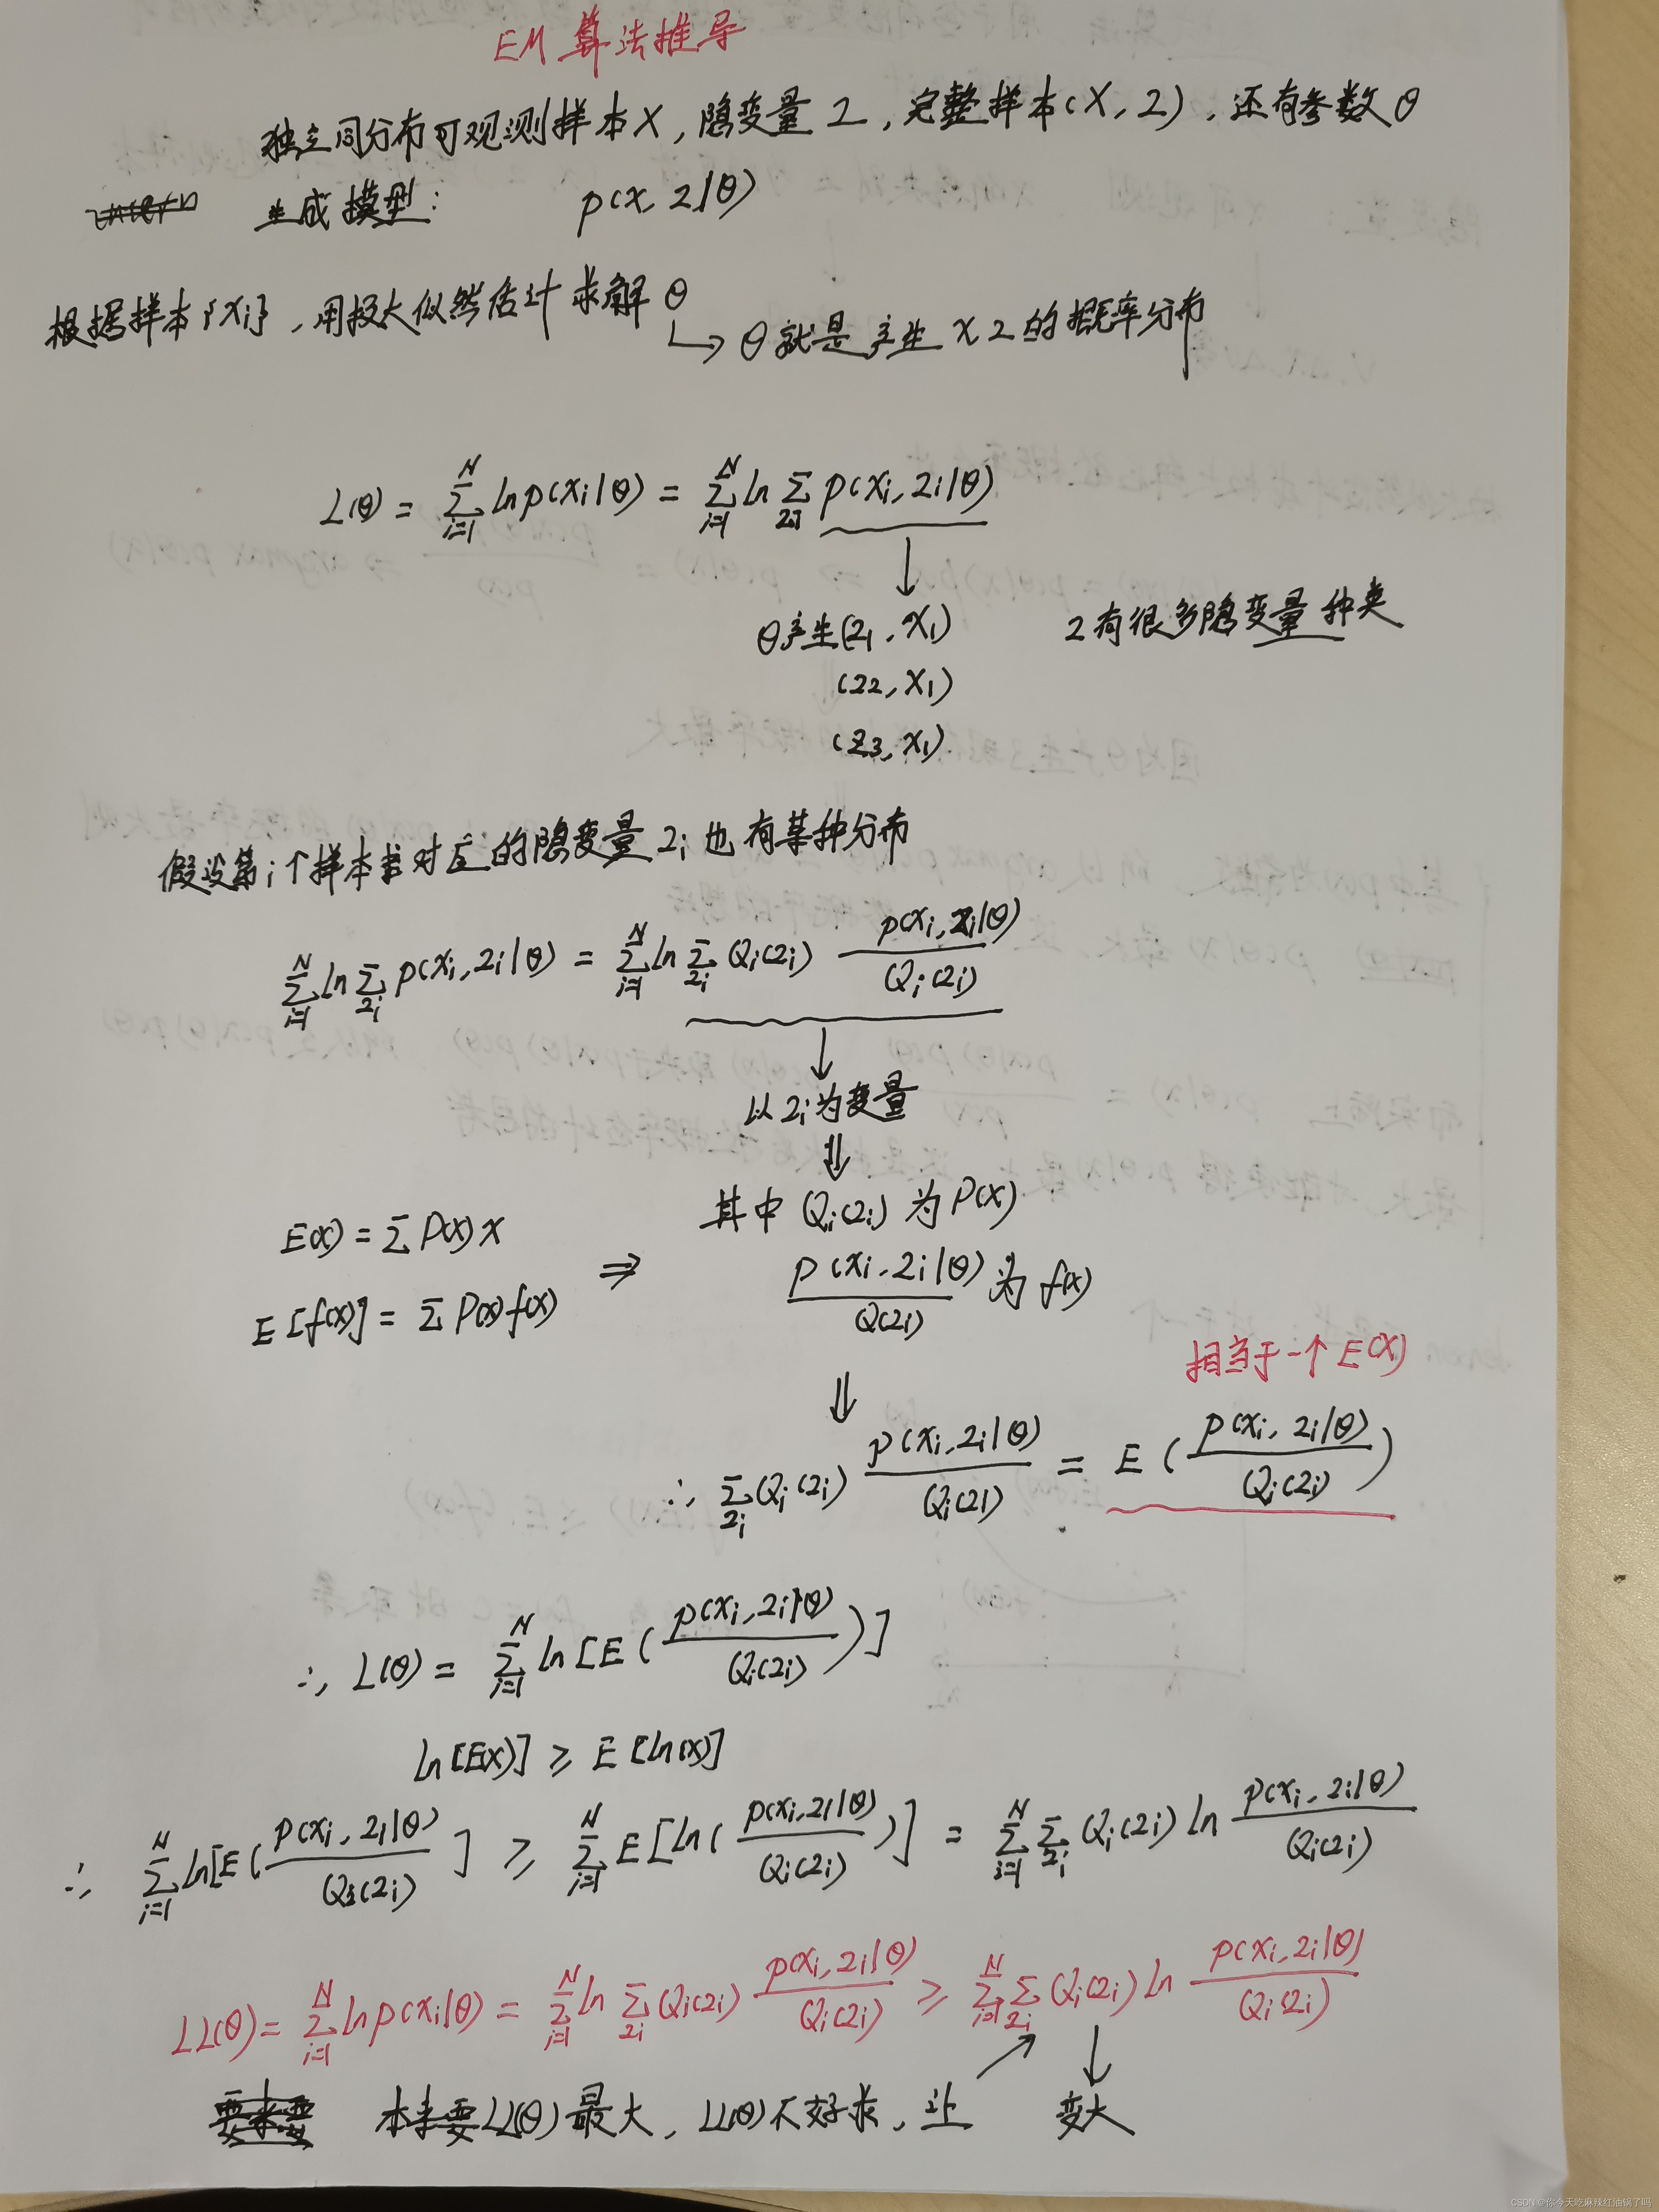 EM 算法推导
独立同分布可观测样本X，隐变量Z，完整样本(X, Z)，还有参数θ
生成模型： p(x, z|θ)
根据样本{xi}，用极大似然估计求解θ
↳ θ就是产生 x z 的概率分布
L(θ) = Σ_{i=1}^{N} ln p(xi|θ) = Σ_{i=1}^{N} ln Σ_{zi} p(xi, zi|θ)
↓
θ产生(z1, x1) z有很多隐变量种类
(z2, x1)
(z3, x1)
假设第i个样本对应的隐变量zi也有某种分布
Σ_{i=1}^{N} ln Σ_{zi} p(xi, zi|θ) = Σ_{i=1}^{N} ln Σ_{zi} Qi(zi) p(xi, zi|θ)/Qi(zi)
↓
以zi为变量
⇓
其中 Qi(zi) 为 P(x)
E(x) = Σ P(x) x
⇒ p(xi, zi|θ)/Q(zi) 为 f(x)
E[f(x)] = Σ P(x) f(x)
相当于一个 E(X)
⇓
∴ Σ_{zi} Qi(zi) p(xi, zi|θ)/Qi(zi) = E(p(xi, zi|θ)/Qi(zi))
∴ L(θ) = Σ_{i=1}^{N} ln[E(p(xi, zi|θ)/Qi(zi))]
ln[E(x)] ≥ E[ln(x)]
∴ Σ_{i=1}^{N} ln[E(p(xi, zi|θ)/Qi(zi)] ≥ Σ_{i=1}^{N} E[ln(p(xi, zi|θ)/Qi(zi))] = Σ_{i=1}^{N} Σ_{zi} Qi(zi) ln p(xi, zi|θ)/Qi(zi)
LL(θ) = Σ_{i=1}^{N} ln p(xi|θ) = Σ_{i=1}^{N} ln Σ_{zi} Qi(zi) p(xi, zi|θ)/Qi(zi) ≥ Σ_{i=1}^{N} Σ_{zi} Qi(zi) ln p(xi, zi|θ)/Qi(zi)
本来要LL(θ)最大，LL(θ)不好求，让 ↗ ↓ 变大
CSDN @你今天吃麻辣红油锅了吗